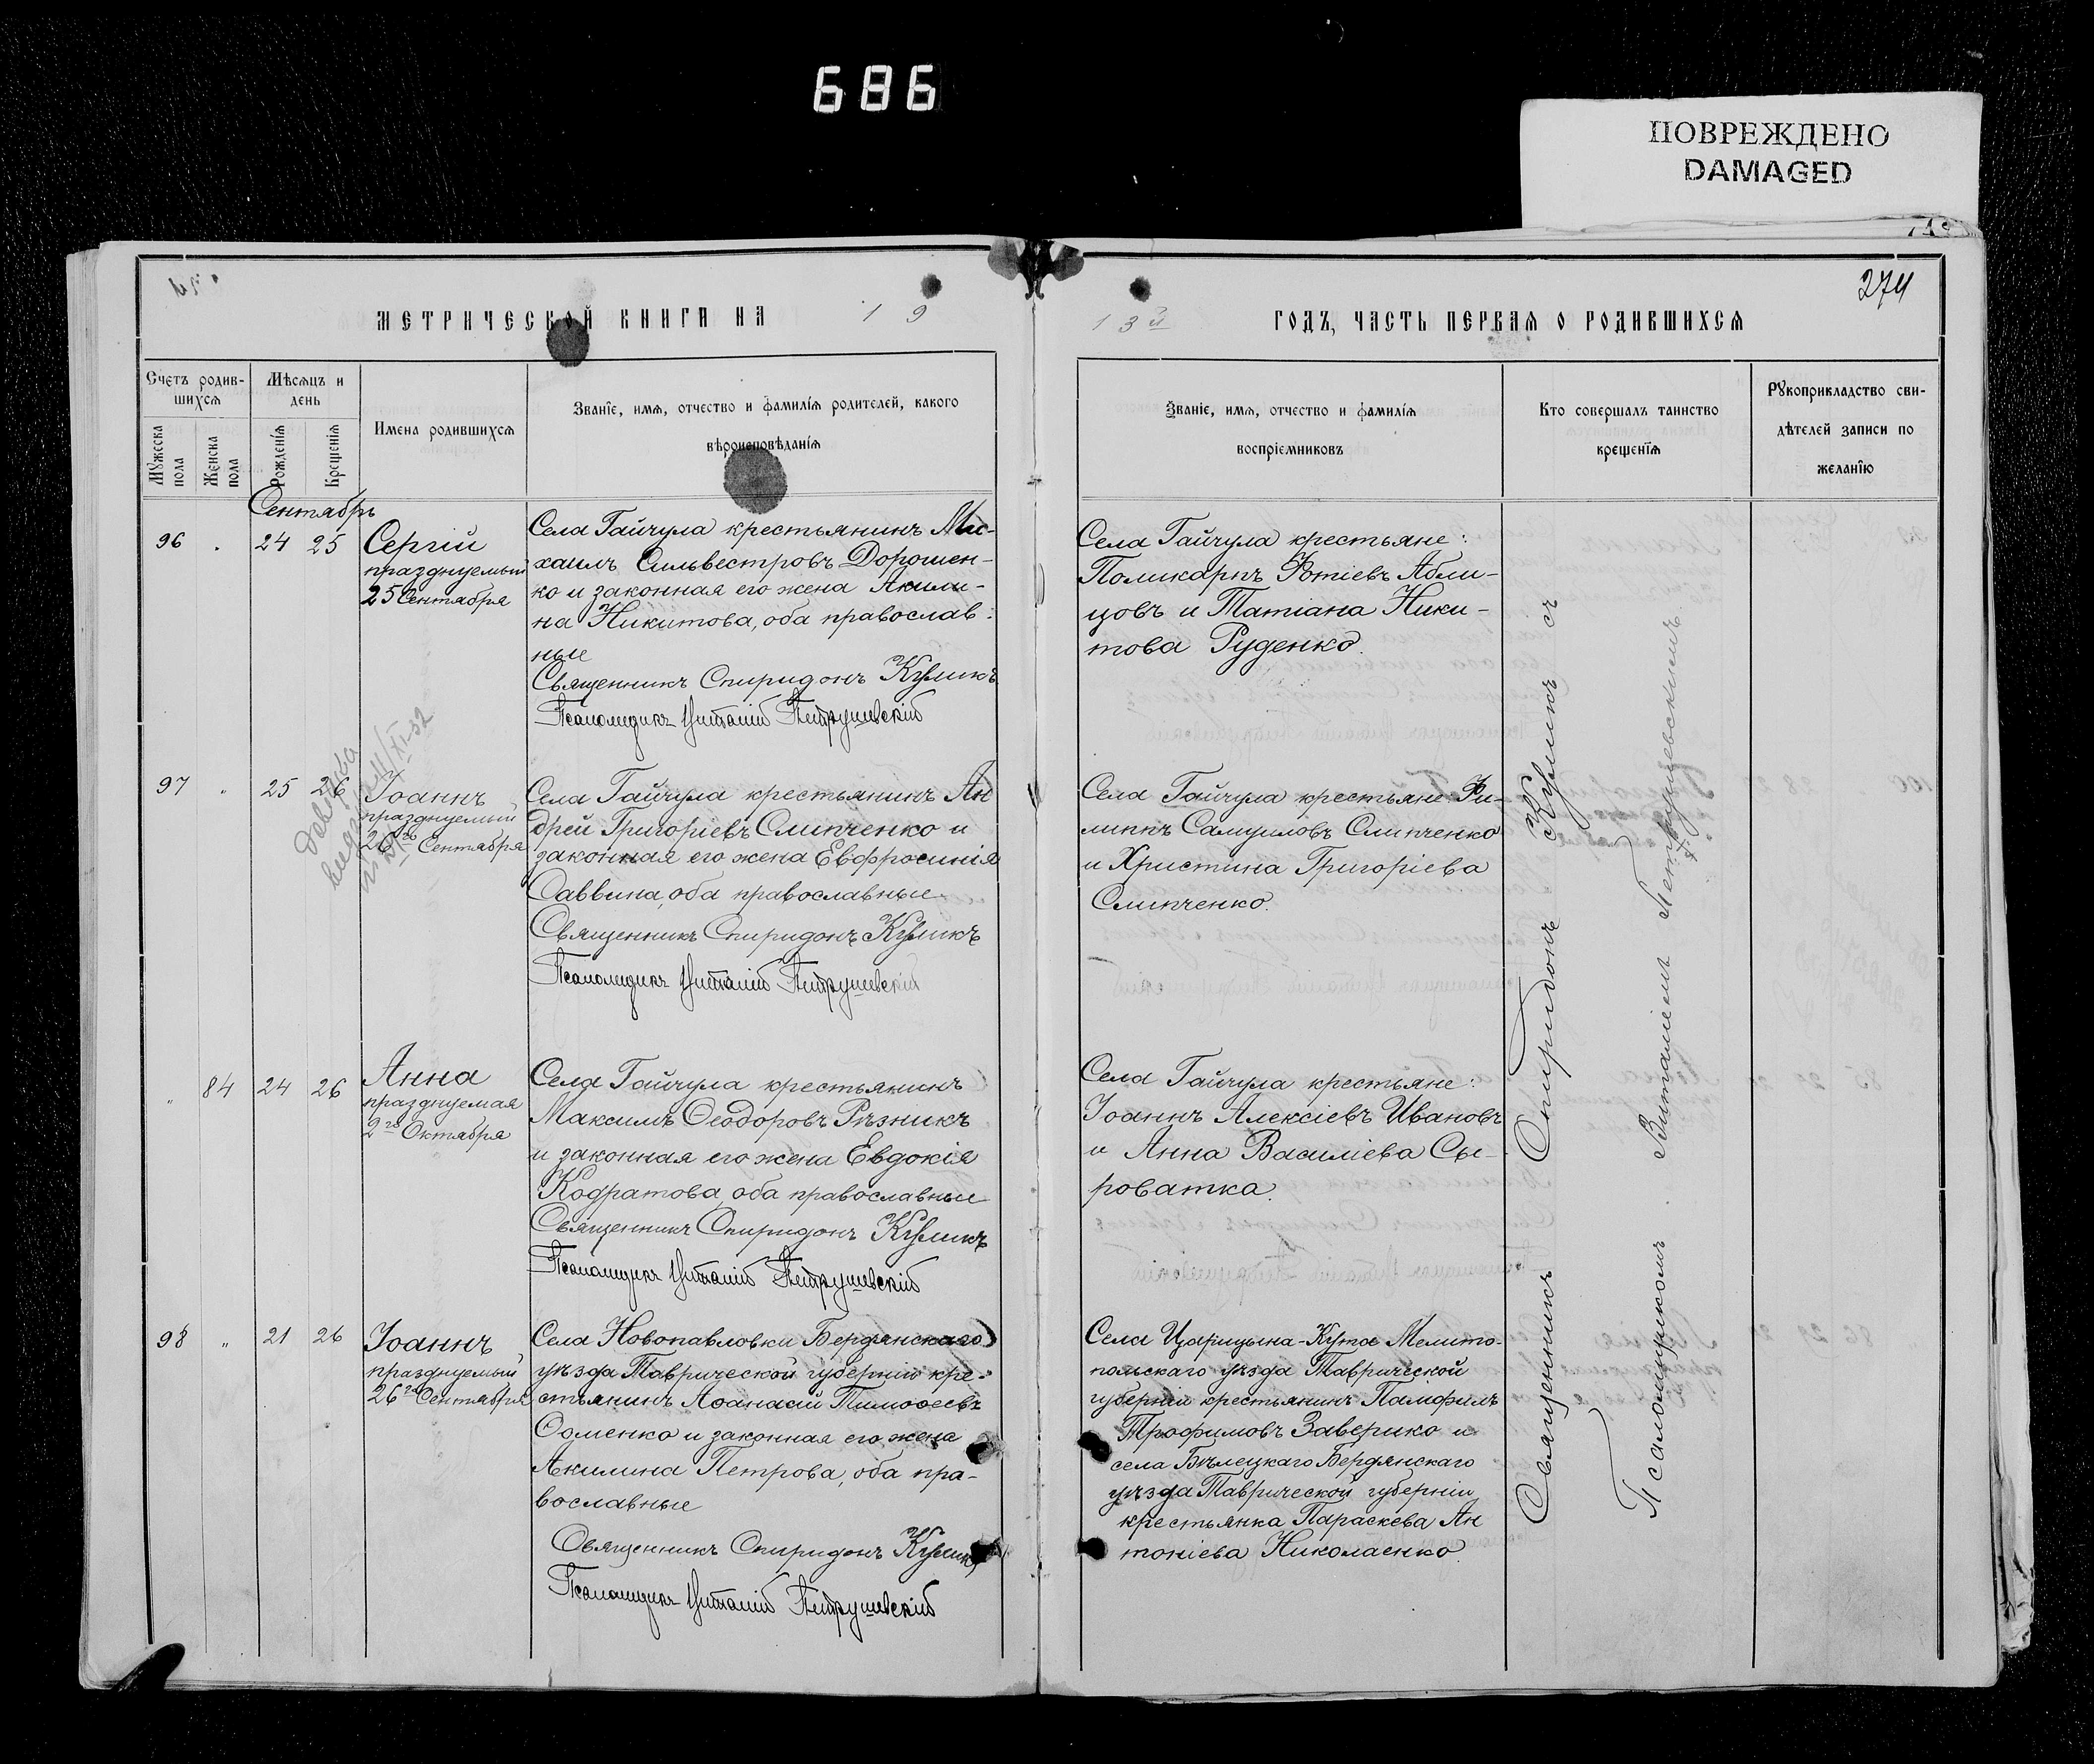 686
ПОВРЕЖДЕНО
DAMAGED
274
МЕТРИЧЕСКОЙ КНИГИ НА 19
13й ГОДЪ, ЧАСТЬ ПЕРВАЯ О РОДИВШИХСЯ
Счетъ родив-
шихся
Мѣсяцъ и
день
Мужеска
пола
Женска
пола
Рожденія
Крещенія
Имена родившихся
Званіе, имя, отчество и фамилія родителей, какого
вѣроисповѣданія
Званіе, имя, отчество и фамилія
воспріемниковъ
Кто совершалъ таинство
крещенія
Рукоприкладство сви-
дѣтелей записи по
желанію
Сентябрь
96 24 25
Сергій
празднуемый
25 Сентября
Села Гайчула крестьянинъ Ми-
хаилъ Сильвестровъ Дорошен-
ко и законная его жена Акили-
на Никитова, оба православ-
ные
Священникъ Спиридонъ Куликъ
Псаломщикъ Виталій Петрушевскій
Села Гайчула крестьяне:
Поликарпъ Фотіевъ Абли-
цовъ и Татіана Ники-
това Руденко.
97 " 25 26
Іоаннъ
празднуемый
26го Сентября
Села Гайчула крестьянинъ Ан
дрей Григоріевъ Слипченко и
законная его жена Евфросинія
Саввина, оба православные
Священникъ Спиридонъ Куликъ
Псаломщикъ Виталій Петрушевскій
Села Гайчула крестьяне Фи-
липпъ Самуиловъ Слипченко
и Христина Григоріева
Слипченко.
" 84 24 26
Анна
празднуемая
2го Октября
Села Гайчула крестьянинъ
Максимъ Ѳеодоровъ Рѣзникъ
и законная его жена Евдокія
Кодратова, оба православные
Священникъ Спиридонъ Куликъ
Псаломщикъ Виталій Петрушевскій
Села Гайчула крестьяне:
Іоаннъ Алексіевъ Ивановъ
и Анна Василіева Сы-
роватка.
98 " 21 26
Іоаннъ
празднуемый
26го Сентября
Села Новопавловки Бердянскаго
уѣзда Таврической губерніи кре-
стьянинъ Аѳанасій Тимоѳеевъ
Ѳоменко и законная его жена
Акилина Петрова, оба пра-
вославные
Священникъ Спиридонъ Куликъ
Псаломщикъ Виталій Петрушевскій
Села Царицына-Кута Мелито-
польскаго уѣзда Таврической
губерніи крестьянинъ Памфилъ
Трофимовъ Заверико и
села Бѣлецкаго Бердянскаго
уѣзда Таврической губерніи
крестьянка Параскева Ан
тоніева Николаенко.
Священникъ Спиридонъ Куликъ съ
Псаломщикомъ Виталіемъ Петрушевскимъ